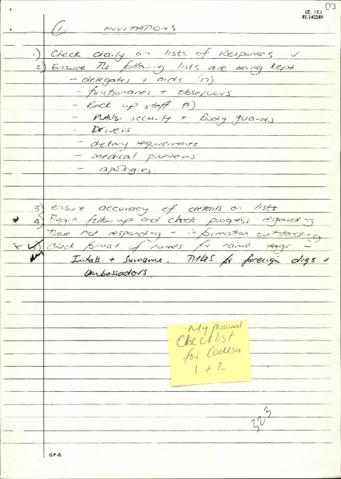 (1) INVITATIONS
1) Check daily on lists of Responses
2) Ensure the following lists are being kept
- delegates + aids
- functionaries + observers
- Back up staff
- security + Body guards
- Drivers
- dietary requirements
- medical problems
- apologies
3) ensure accuracy of details on lists
4) Begin follow ups and check progress regarding
those not responding - information outstanding
Check format of names for name tags -
Initials + Surname. Titles for foreign digs +
ambassadors.
My personal
Checklist
for Codesa
1 + 2
323
G.P.-S.